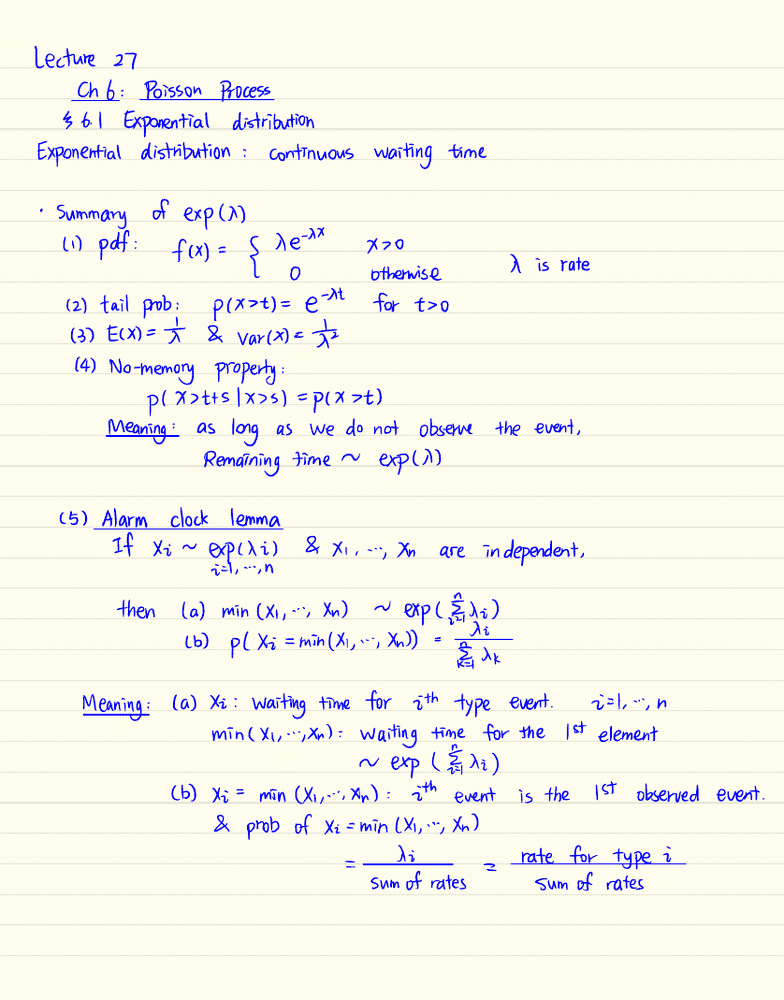 Lecture 27
Ch 6: Poisson Process
§ 6.1 Exponential distribution
Exponential distribution : continuous waiting time
· Summary of exp(λ)
(1) pdf: f(x) = { λe^{-λx} x>0
0 otherwise λ is rate
(2) tail prob: p(x>t) = e^{-λt} for t>0
(3) E(X) = 1/λ & Var(x) = 1/λ²
(4) No-memory property:
p( x>t+s | x>s) = p(x>t)
Meaning: as long as we do not observe the event,
Remaining time ~ exp(λ)
(5) Alarm clock lemma
If Xi ~ exp(λi) & X1, ..., Xn are independent,
i=1, ..., n
then (a) min (X1, ..., Xn) ~ exp( Σ_{i=1}^{n} λi)
(b) p( Xi = min(X1, ..., Xn)) = λi / Σ_{k=1}^{n} λk
Meaning: (a) Xi : waiting time for i^th type event. i=1, ..., n
min(X1, ..., Xn): waiting time for the 1st element
~ exp ( Σ_{i=1}^{n} λi)
(b) Xi = min (X1, ..., Xn): i^th event is the 1st observed event.
& prob of Xi = min (X1, ..., Xn)
= λi / sum of rates = rate for type i / sum of rates